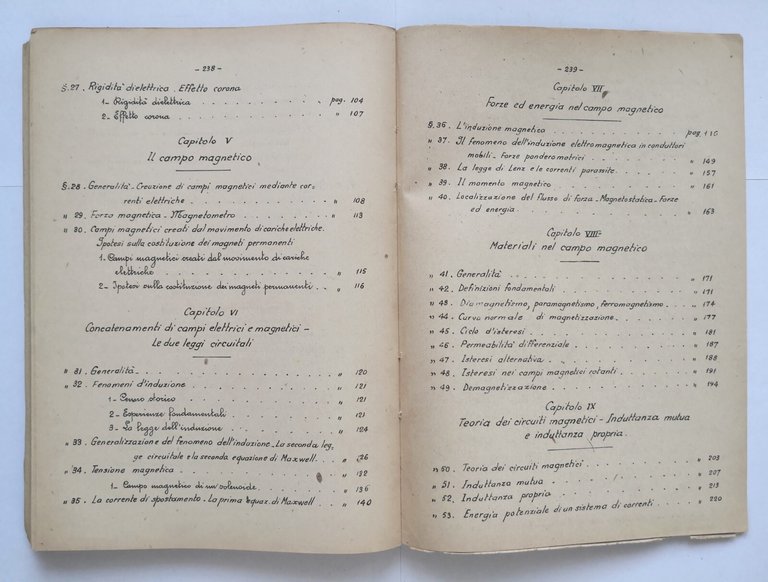 - 238 -
§.27. Rigidità dielettrica. Effetto corona
1- Rigidità dielettrica . . . . . . . . . . . . " pag. 104
2- Effetto corona . . . . . . . . . . . . " 107
Capitolo V
Il campo magnetico
§.28. Generalità - Creazione di campi magnetici mediante cor=
renti elettriche . . . . . . . . . . . . " 108
" 29. Forza magnetica - Magnetometro . . . . . . " 113
" 30. Campi magnetici creati dal movimento di cariche elettriche.
Ipotesi sulla costituzione dei magneti permanenti
1- Campi magnetici creati dal movimento di cariche
elettriche . . . . . . . . . . . . " 115
2- Ipotesi sulla costituzione dei magneti permanenti . . . " 116
Capitolo VI
Concatenamenti di campi elettrici e magnetici -
Le due leggi circuitali
" 31. Generalità . . . . . . . . . . . . " 120
" 32. Fenomeni d'induzione . . . . . . . . . . " 121
1- Cenno storico . . . . . . . . . . . " 121
2- Esperienze fondamentali . . . . . . . . " 121
3- La legge dell'induzione . . . . . . . . " 124
" 33. Generalizzazione del fenomeno dell'induzione - La seconda leg=
ge circuitale e la seconda equazione di Maxwell . . . "
" 34. Tensione magnetica . . . . . . . . . . " 132
1- Campo magnetico di un solenoide . . . . . . " 136
" 35. La corrente di spostamento. La prima Equaz. di Maxwell " 140
- 239 -
Capitolo VII
Forze ed energia nel campo magnetico
§.36. L'induzione magnetica . . . . . . . . . . pag.
" 37. Il fenomeno dell'induzione elettromagnetica in conduttori
mobili - Forze ponderomotrici . . . . . . . " 149
" 38. La legge di Lenz e le correnti parassite . . . . " 157
" 39. Il momento magnetico . . . . . . . . . . " 161
" 40. Localizzazione del flusso di forza - Magnetostatica - Forze
ed energia . . . . . . . . . . . . " 163
Capitolo VIII-
Materiali nel campo magnetico
" 41. Generalità . . . . . . . . . . . . " 171
" 42. Definizioni fondamentali . . . . . . . . . " 171
" 43. Diamagnetismo, paramagnetismo, ferromagnetismo . . . " 174
" 44. Curva normale di magnetizzazione . . . . . . " 177
" 45. Ciclo d'isteresi . . . . . . . . . . . " 181
" 46. Permeabilità differenziale . . . . . . . . " 187
" 47. Isteresi alternativa . . . . . . . . . . " 188
" 48. Isteresi nei campi magnetici rotanti . . . . . " 191
" 49. Demagnetizzazione . . . . . . . . . . " 194
Capitolo IX
Teoria dei circuiti magnetici - Induttanza mutua
e induttanza propria.
" 50. Teoria dei circuiti magnetici . . . . . . . " 203
" 51. Induttanza mutua . . . . . . . . . . " 207
" 52. Induttanza propria . . . . . . . . . . " 213
" 53. Energia potenziale di un sistema di correnti . . . " 220